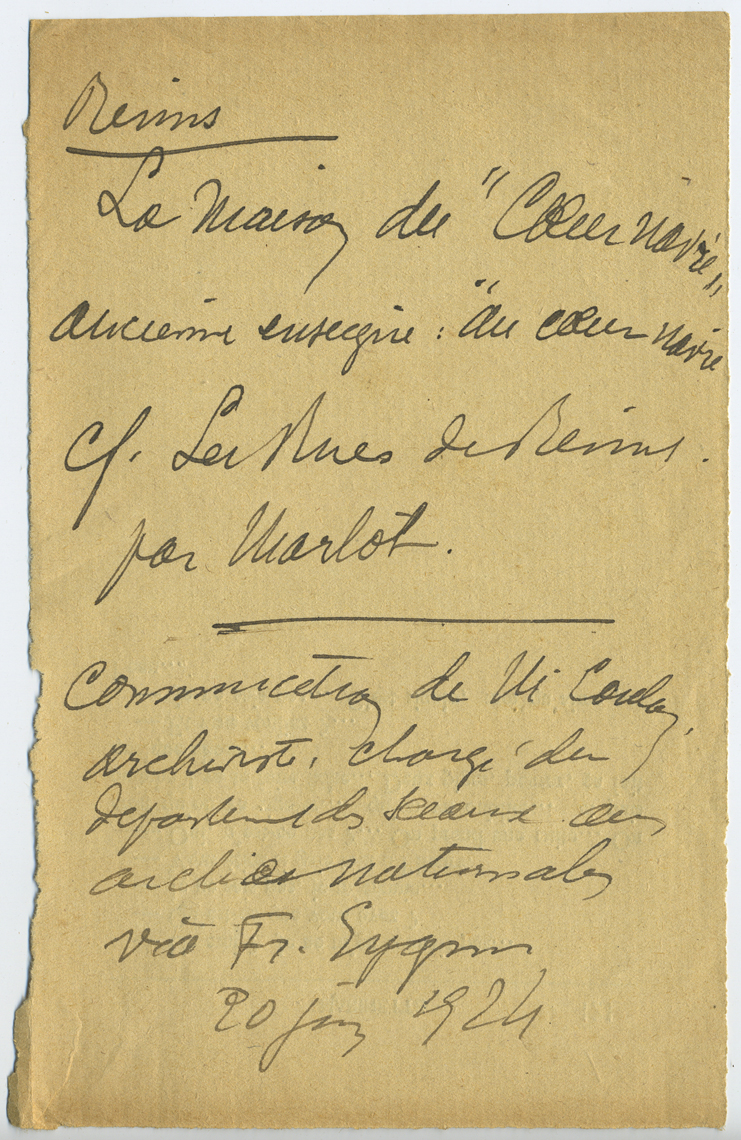 Reims
La Maison du "Cœur navré"
ancienne enseigne : "Au cœur navré
cf. Les Rues de Reims.
par Marlot.
Communication de Mr
archiviste, chargé du
département des sceaux aux
archives nationales
via Fr. Eygun
20 juin 1924